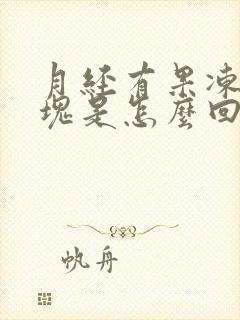 月经有果凍
塊是怎麼回
帆舟